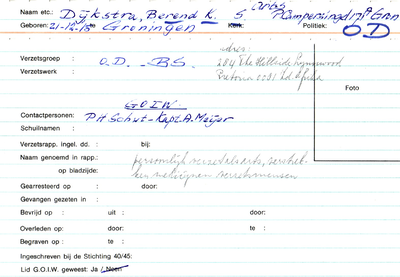 Naam etc.: Dijkstra, Berend K. S. arts
Geboren: 21-12-'15 te Groningen Kerk: Politiek: O D
Verzetsgroep : O.D. - B.S. adres:
Verzetswerk : 204 The Hillside Lynnwood
Pretoria 0081 Zd. Afrika
Foto
G.O.I.W.
Contactpersonen: P.H. Schut - Kapt. A. Meijer
Schuilnamen :
Verzetsrapp. ingel. dd. : bij:
Naam genoemd in rapp.: persoonlijk verzet als arts,
op bladzijde:
Gearresteerd op : door:
Gevangen gezeten in :
Bevrijd op : uit : door:
Overleden op: door: te :
Begraven op : te :
Ingeschreven bij de Stichting 40/45:
Lid G.O.I.W. geweest: Ja / Neen